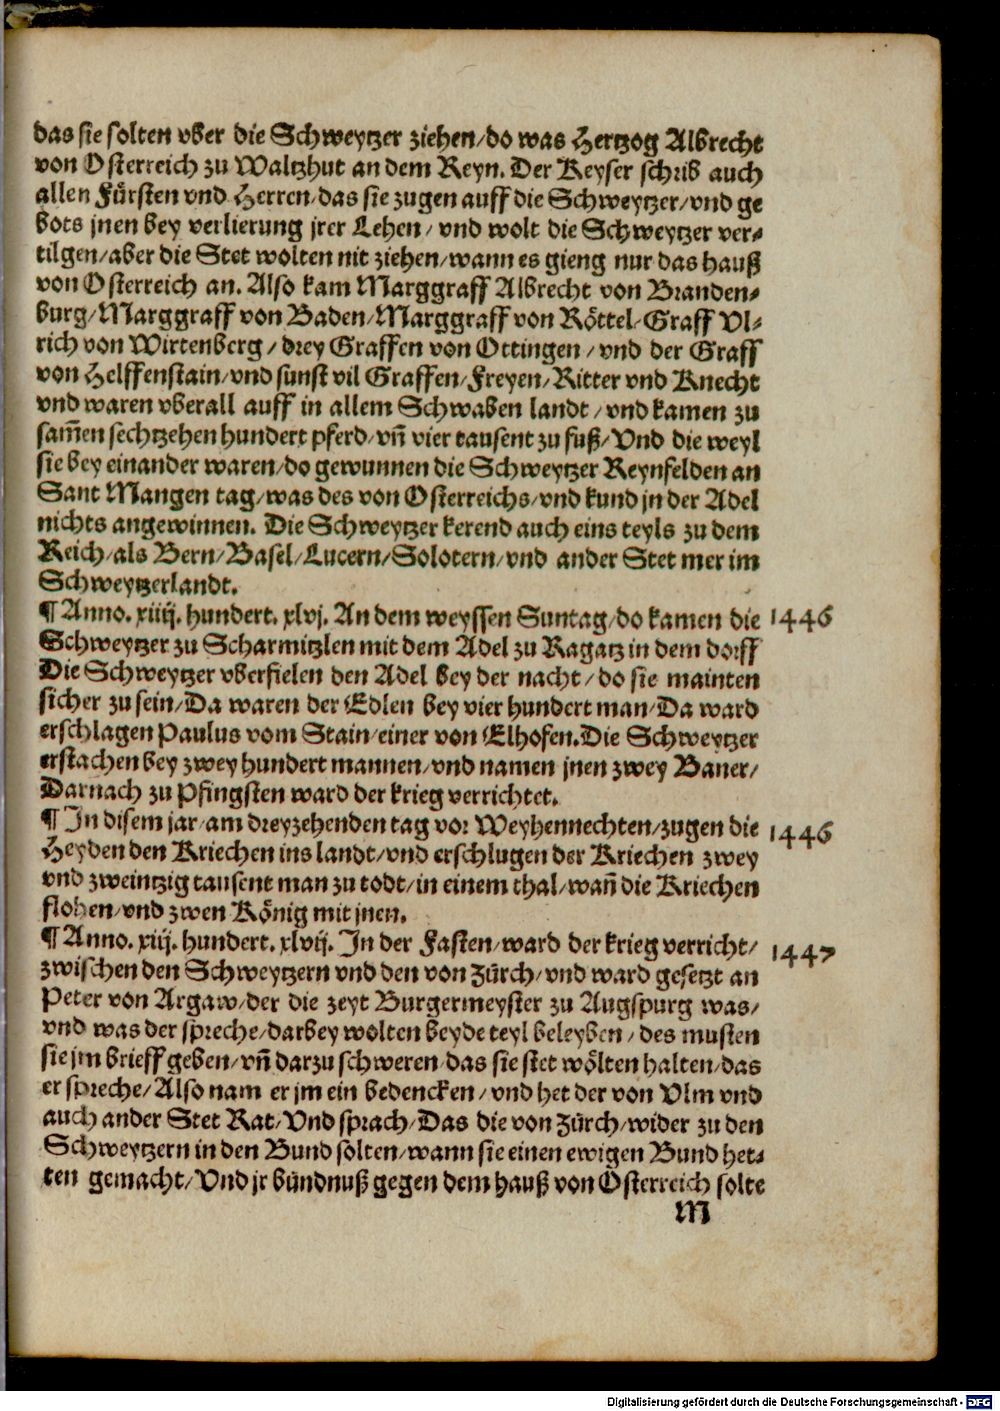 das sie solten vber die Schweytzer ziehen/do was Hertzog Albrecht
von Osterreich zu Waltzhut an dem Reyn. Der Keyser schrib auch
allen Fürsten vnd Herren/das sie zugen auff die Schweytzer/vnd ge
bots jnen bey verlierung jrer Lehen/vnd wolt die Schweytzer ver-
tilgen/aber die Stet wolten nit ziehen/wann es gieng nur das hauß
von Osterreich an. Also kam Marggraff Albrecht von Branden-
burg/Marggraff von Baden/Marggraff von Röttel/Graff Vl-
rich von Wirtenberg/drey Graffen von Ottingen/vnd der Graff
von Helffenstain/vnd sunst vil Graffen/Freyen/Ritter vnd Knecht
vnd waren vberall auff in allem Schwaben landt/vnd kamen zu
sam̄en sechtzehen hundert pferd/vn̄ vier tausent zu fuß/Vnd die weyl
sie bey einander waren/do gewunnen die Schweytzer Reynfelden an
Sant Mangen tag/was des von Osterreichs/vnd kund jn der Adel
nichts angewinnen. Die Schweytzer kerend auch eins teyls zu dem
Reich/als Bern/Basel/Lucern/Solotern/vnd ander Stet mer im
Schweytzerlandt.
¶ Anno. xiiij. hundert. xlvj. An dem weyssen Suntag/do kamen die 1446
Schweytzer zu Scharmitzlen mit dem Adel zu Ragatz in dem dorff
Die Schweytzer vberfielen den Adel bey der nacht/do sie mainten
sicher zu sein/Da waren der Edlen bey vier hundert man/Da ward
erschlagen Paulus vom Stain/einer von Elhofen.Die Schweytzer
erstachen bey zwey hundert mannen/vnd namen jnen zwey Baner/
Darnach zu Pfingsten ward der krieg verrichtet.
¶ In disem jar/am dreyzehenden tag vor Weyhennechten/zugen die 1446
Heyden den Kriechen ins landt/vnd erschlugen der Kriechen zwey
vnd zweintzig tausent man zu todt/in einem thal/wan̄ die Kriechen
flohen/vnd zwen König mit jnen.
¶ Anno. xiij. hundert. xlvij. In der Fasten/ward der krieg verricht/ 1447
zwischen den Schweytzern vnd den von Zürch/vnd ward gesetzt an
Peter von Argaw/der die zeyt Burgermeyster zu Augspurg was/
vnd was der spreche/darbey wolten beyde teyl beleyben/des musten
sie jm brieff geben/vn̄ darzu schweren/das sie stet wölten halten/das
er spreche/Also nam er jm ein bedencken/vnd het der von Vlm vnd
auch ander Stet Rat/Vnd sprach/Das die von Zürch/wider zu den
Schweytzern in den Bund solten/wann sie einen ewigen Bund het-
ten gemacht/Vnd jr bündnuß gegen dem hauß von Osterreich solte
M
Digitalisierung gefördert durch die Deutsche Forschungsgemeinschaft - DFG